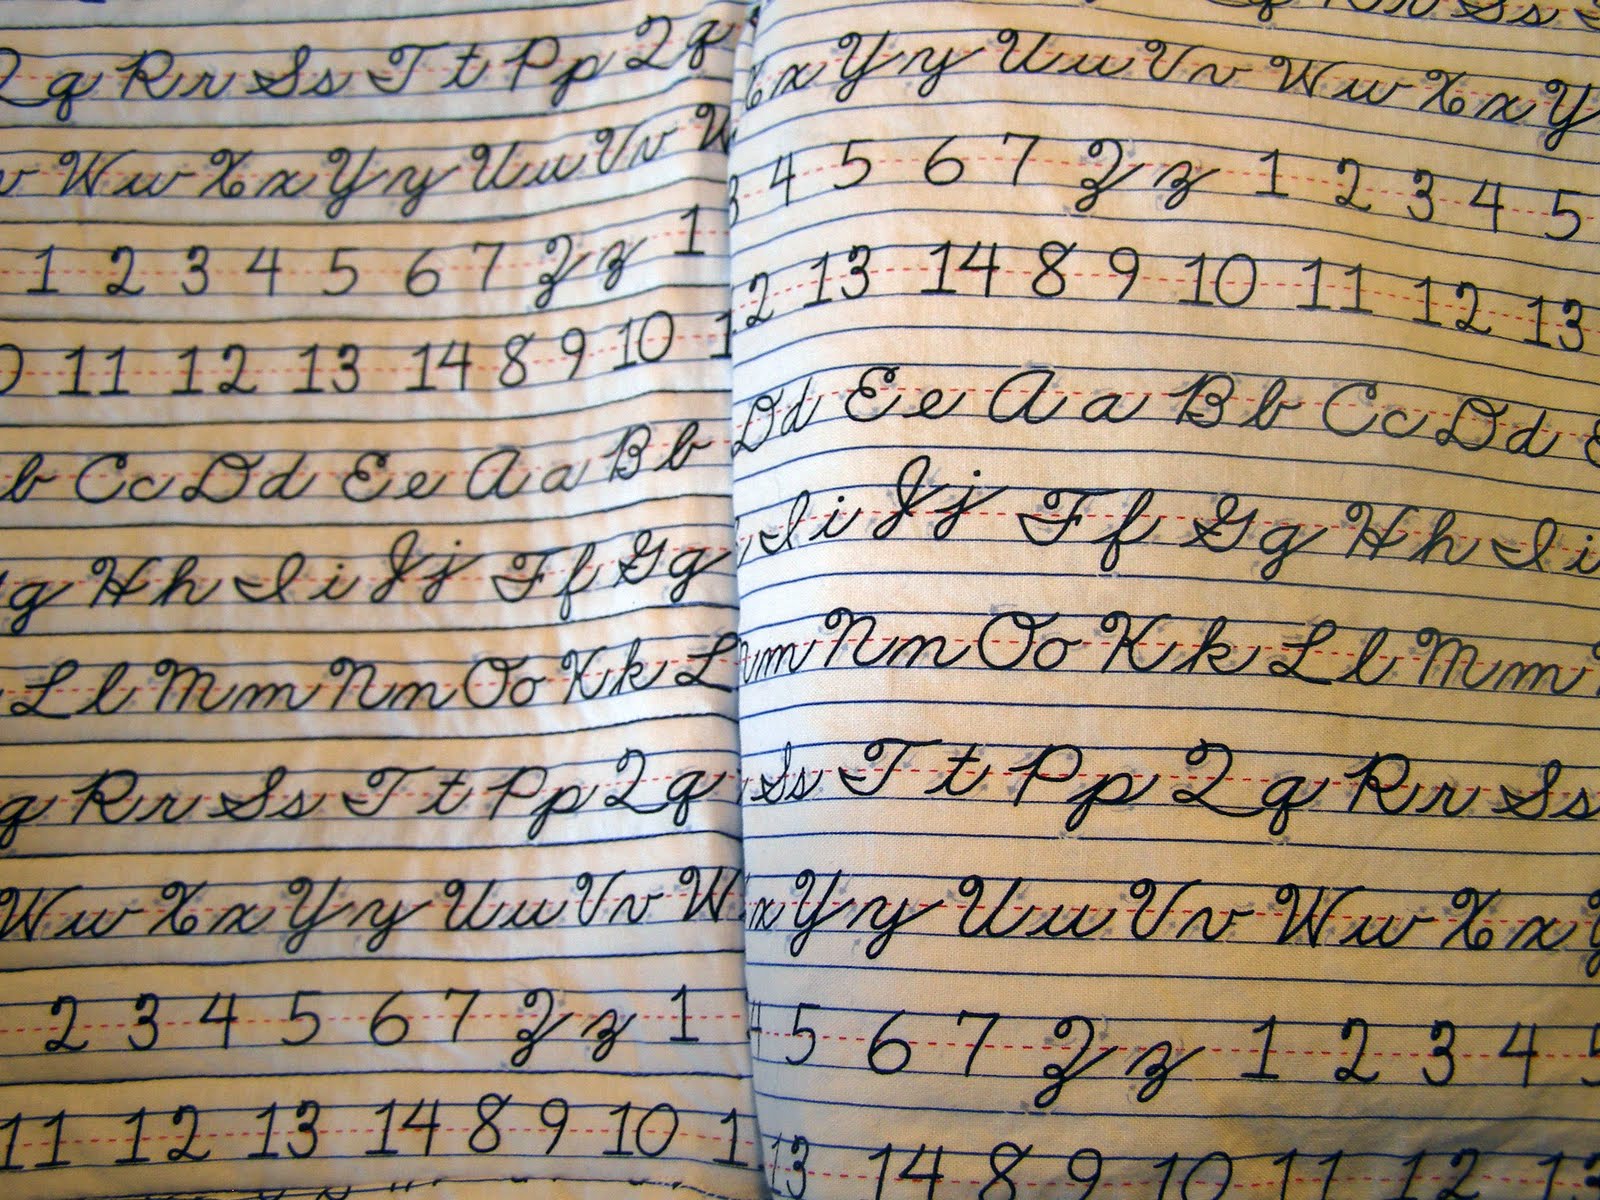 Qq Rr Ss Tt Pp Qq
Ww Xx Yy Uu Vv W
1 2 3 4 5 6 7 Zz 1
11 12 13 14 8 9 10 1
b Cc Dd Ee Aa Bb
g Hh Ii Jj Ff Gg
Ll Mm Nn Oo Kk L
q Rr Ss Tt Pp Qq
Ww Xx Yy Uu Vv W
2 3 4 5 6 7 Zz 1
11 12 13 14 8 9 10 1
Ss
Xx Yy Uu Vv Ww Xx Y
3 4 5 6 7 Zz 1 2 3 4 5
2 13 14 8 9 10 11 12 13
Dd Ee Aa Bb Cc Dd E
Ii Jj Ff Gg Hh Ii
m Nn Oo Kk Ll Mm
Ss Tt Pp Qq Rr Ss
x Yy Uu Vv Ww Xx Y
4 5 6 7 Zz 1 2 3 4 5
13 14 8 9 10 11 12 13